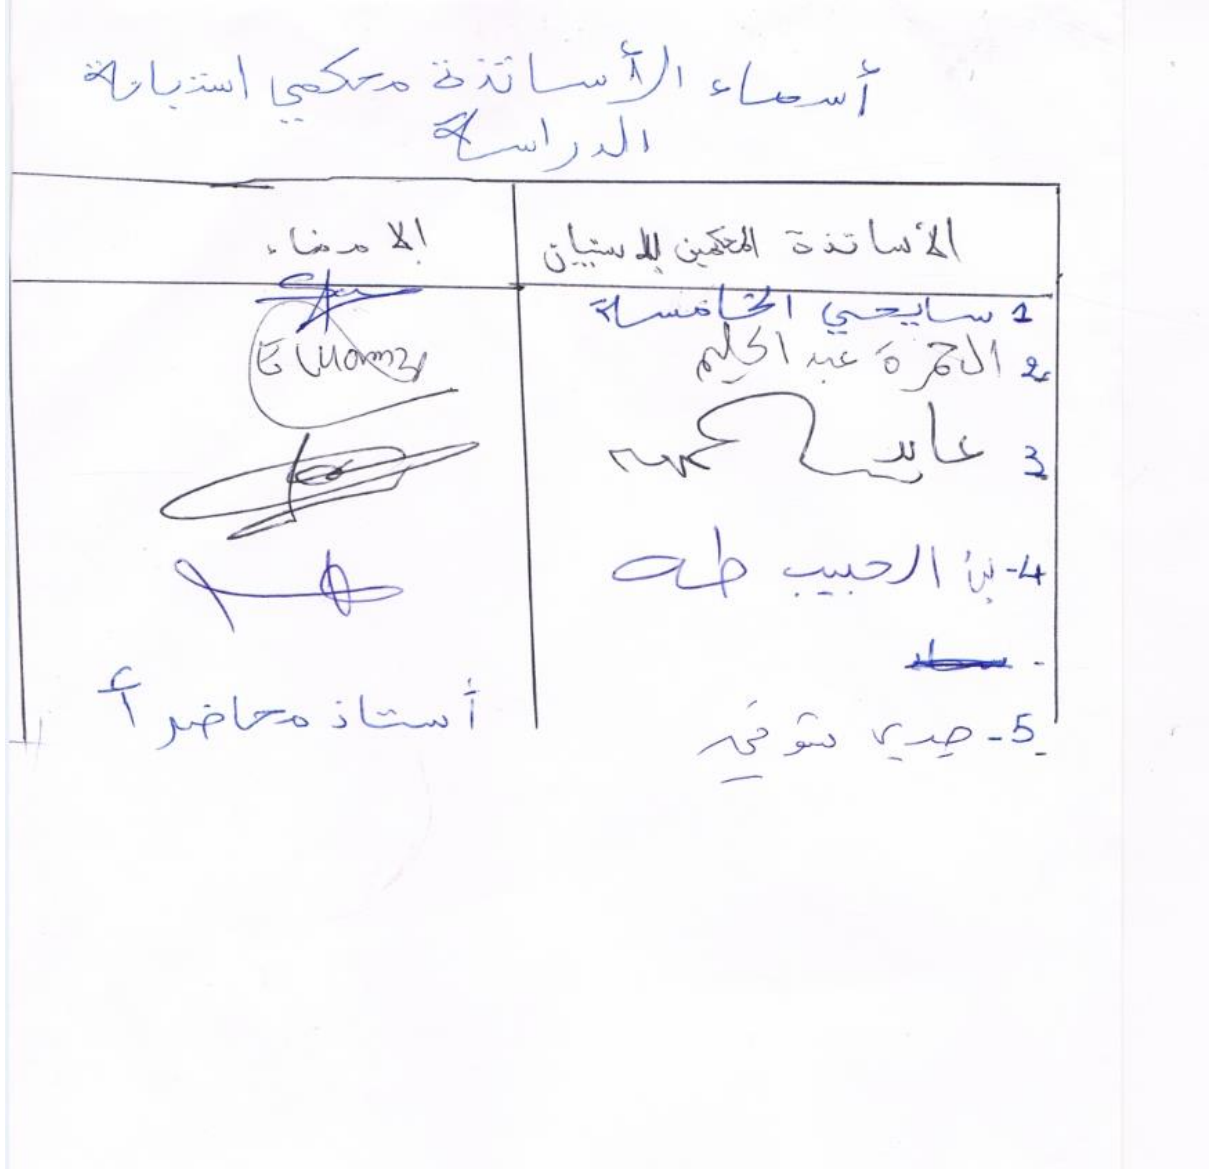 أسماء الأساتذة محكمي استبانة
الدراسة
الأساتذة المحكمين للاستبيان
الامضاء
1 سايحي الخامسة
2 الحمزة عبد الحليم
3 عايد
4- بن الحبيب طه
-
5-
أستاذ محاضر أ